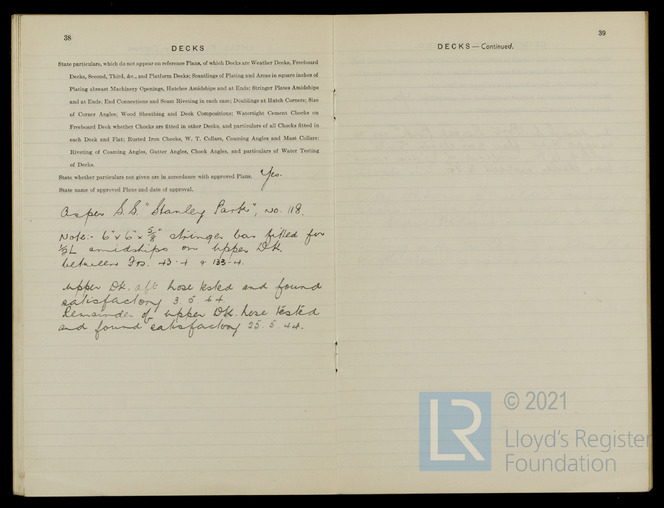 38
DECKS
State particulars, which do not appear on reference Plans, of which Decks are Weather Decks, Freeboard
Decks, Second, Third, &c., and Platform Decks; Scantlings of Plating and Areas in square inches of
Plating abreast Machinery Openings, Hatches Amidships and at Ends; Stringer Plates Amidships
and at Ends; End Connections and Seam Riveting in each case; Doublings at Hatch Corners; Size
of Corner Angles; Wood Sheathing and Deck Compositions; Watertight Cement Chocks on
Freeboard Deck whether Chocks are fitted in other Decks, and particulars of all Chocks fitted in
each Deck and Flat; Rusted Iron Chocks, W. T. Collars, Coaming Angles and Mast Collars;
Riveting of Coaming Angles, Gutter Angles, Chock Angles, and particulars of Water Testing
of Decks.
State whether particulars not given are in accordance with approved Plans. Yes.
State name of approved Plans and date of approval.
As per S.S. "Stanley Park", No. 118.
Note:- 6" x 6" x 5/8" stringer bar fitted for
1/2 L amidships on Upper Dk.
between Frs. 43-4 & 133-4.
Upper Dk. aft hose tested and found
satisfactory 3.5.44.
Remainder of Upper Dk. hose tested
and found satisfactory 25.5.44.
39
DECKS—Continued.
LR
© 2021
Lloyd's Register
Foundation